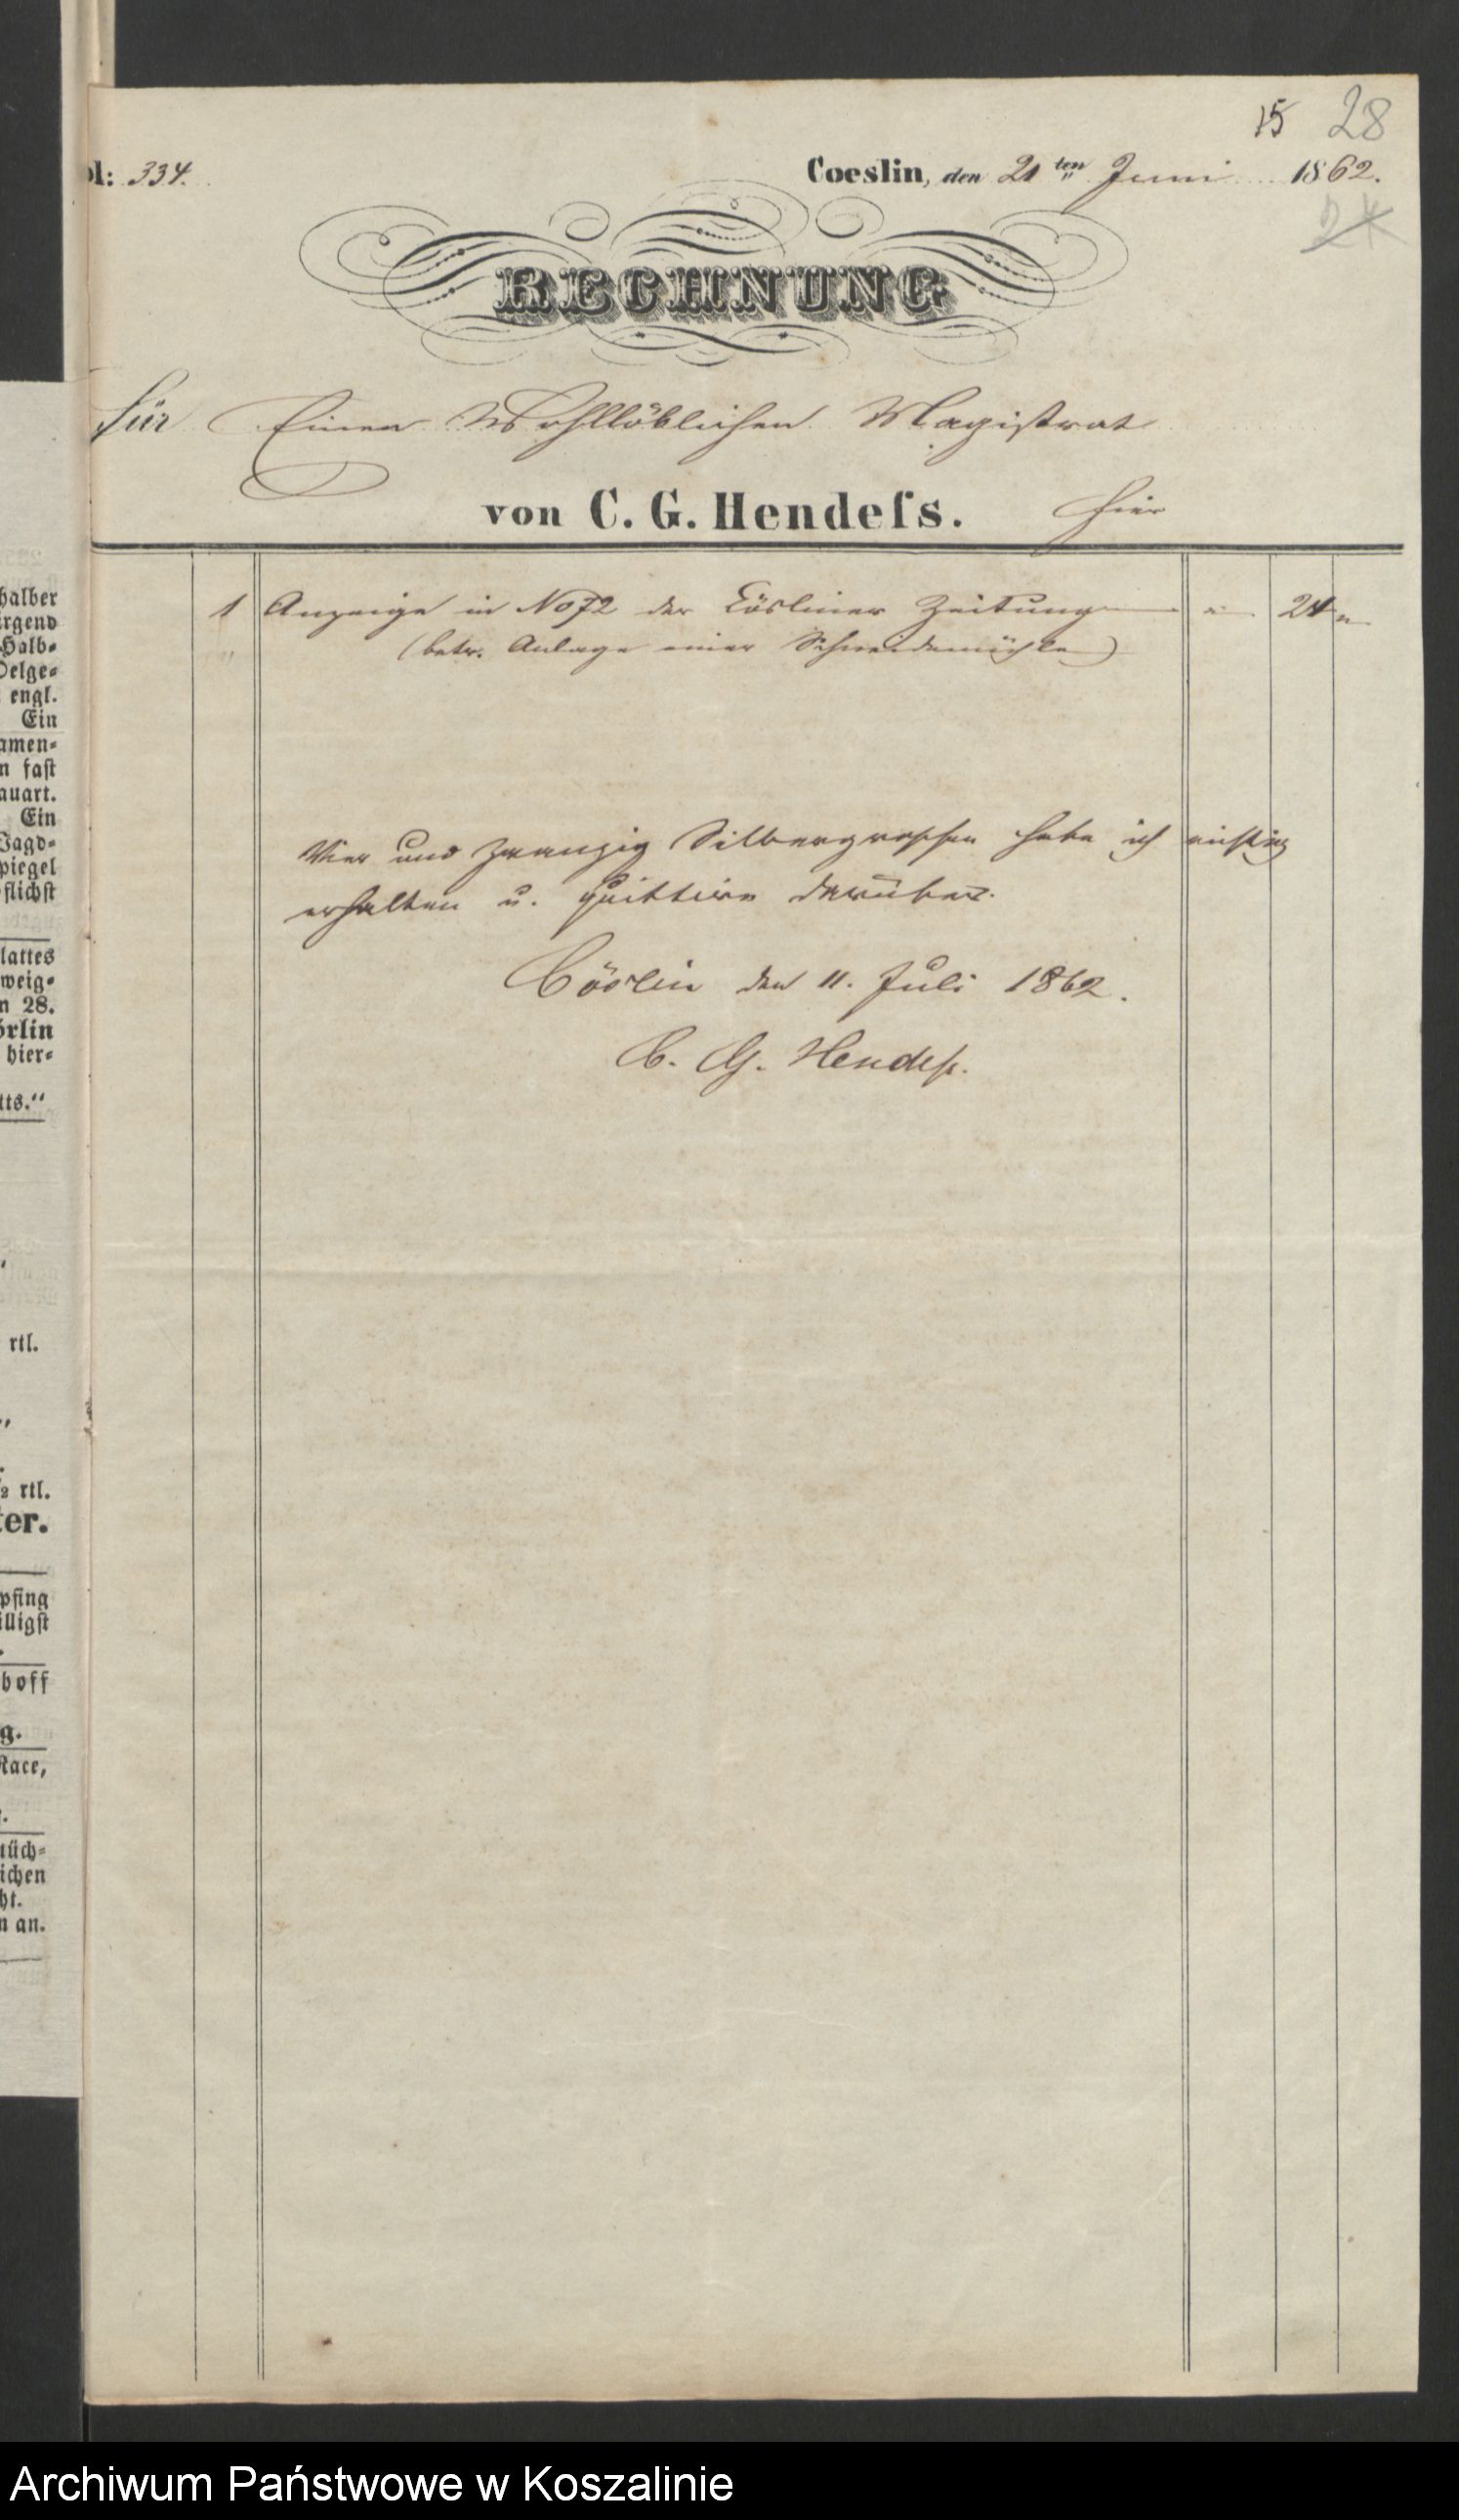 halber
irgend
Halb=
Oelge=
engl.
Ein
amen=
n fast
auart.
Ein
Jagd=
piegel
flichst
lattes
weig=
n 28.
örlin
hier=
tts."
rtl.
½ rtl.
ter.
pfing
illigst
boff
g.
Race,
tüch=
ichen
ht.
n an.
15 28
ol: 334.
Coeslin, den 21ten Juni 1862.
24
RECHNUNG
für Einen Wohllöblichen Magistrat
von C. G. Hendeſs. hier
1 Anzeige in No 72 der Cösliner Zeitung " 24 "
(betr. Anlage einer Schneidemühle)
Vier und zwanzig Silbergroschen habe ich richtig
erhalten u. quittire darüber.
Cöslin den 11. Juli 1862.
C. G. Hendeß.
Archiwum Państwowe w Koszalinie